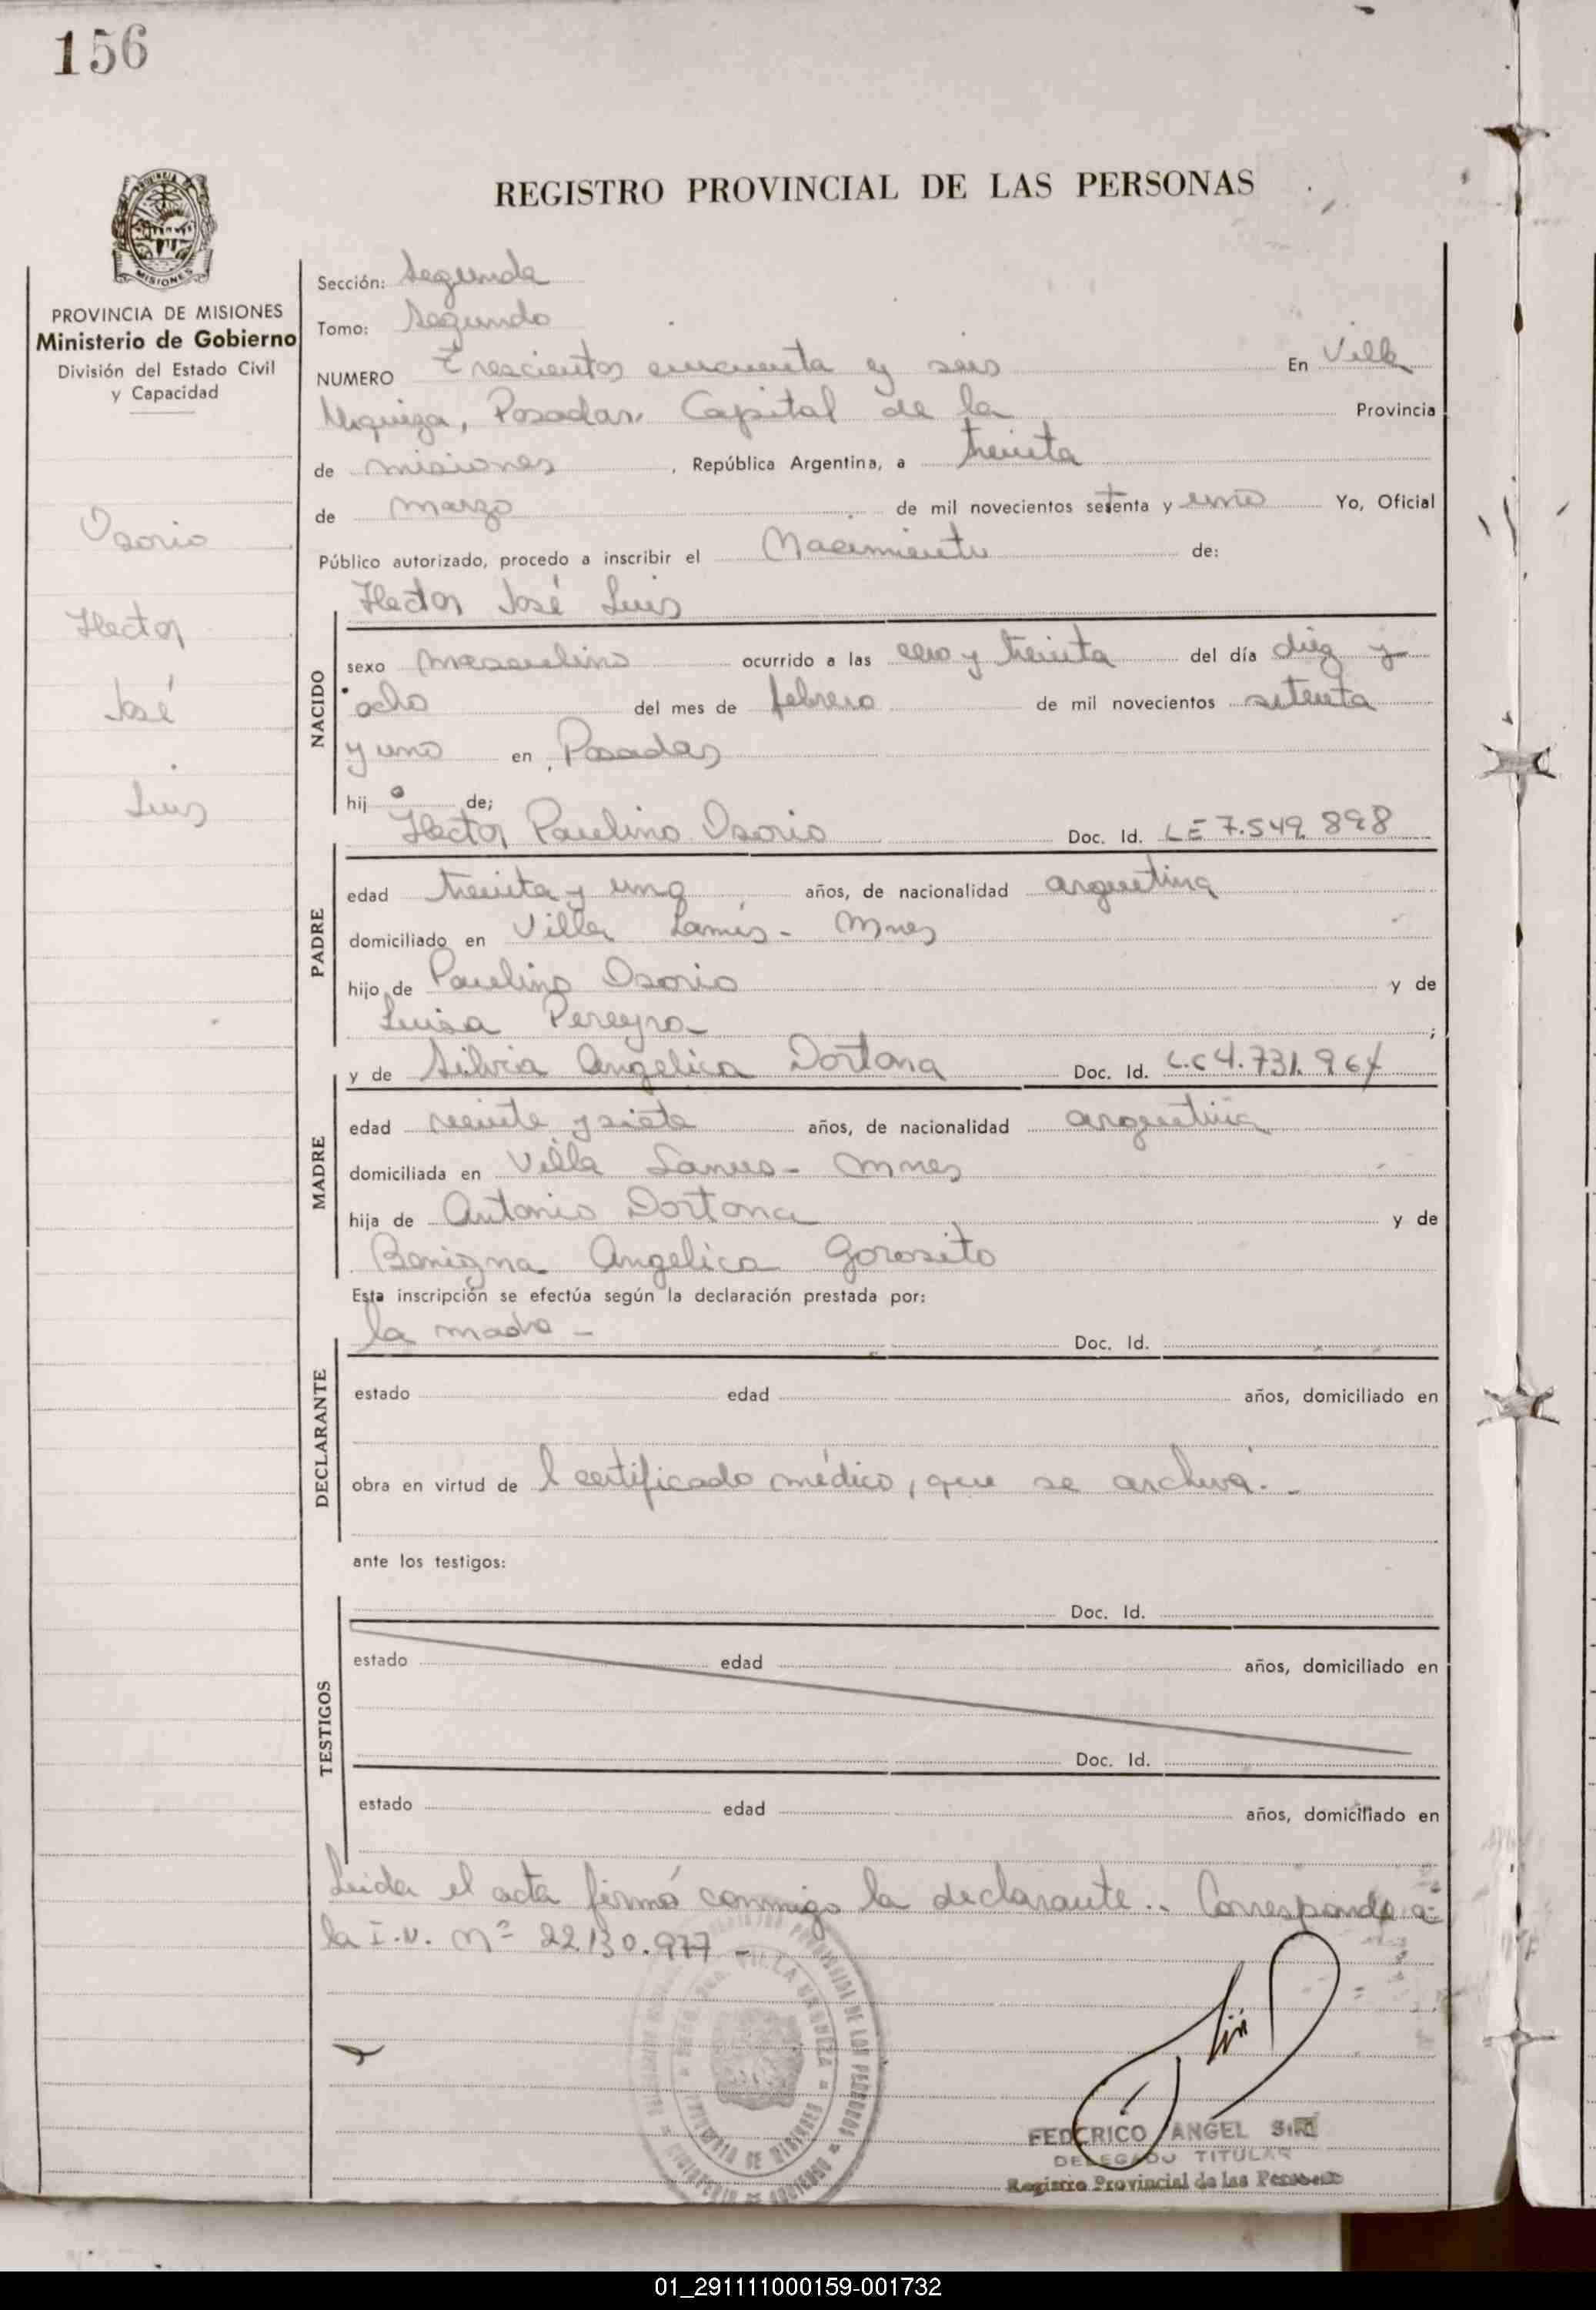 156
REGISTRO PROVINCIAL DE LAS PERSONAS
MISIONES
PROVINCIA DE MISIONES
Ministerio de Gobierno
División del Estado Civil
y Capacidad
Osorio
Hector
José
Luis
Sección: Segunda
Tomo: Segundo
NUMERO Trescientos cincuenta y seis En Villa
Urquiza, Posadas, Capital de la Provincia
de misiones, República Argentina, a treinta
de marzo de mil novecientos setenta y uno Yo, Oficial
Público autorizado, procedo a inscribir el Nacimiento de:
Hector José Luis
NACIDO
sexo masculino ocurrido a las cero y treinta del día diez y
ocho del mes de febrero de mil novecientos setenta
y uno en Posadas
hijo de;
Hector Paulino Osorio Doc. Id. LE 7.549.898
PADRE
edad treinta y uno años, de nacionalidad argentina
domiciliado en Villa Lanús - Mnes
hijo de Paulino Osorio y de
Luisa Pereyra ;
y de Silvia Angelica Dortona Doc. Id. L.C 4.731.964
MADRE
edad veinte y siete años, de nacionalidad argentina
domiciliada en Villa Lanus - Mnes
hija de Antonio Dortona y de
Benigna Angelica Gorosito
Esta inscripción se efectúa según la declaración prestada por:
la madre - Doc. Id.
DECLARANTE
estado edad años, domiciliado en
obra en virtud de l certificado médico, que se archiva. -
ante los testigos:
TESTIGOS
Doc. Id.
estado edad años, domiciliado en
Doc. Id.
estado edad años, domiciliado en
Leida el acta firmó conmigo la declarante.. Corresponde a
la I.N. Nº 22.130.977 -
FEDERICO ANGEL SIRI
DELEGADO TITULAR
Registro Provincial de las Personas
01_291111000159-001732